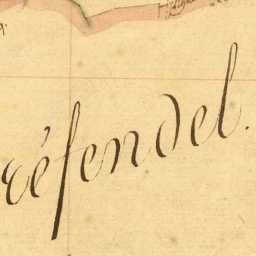 réfendel.